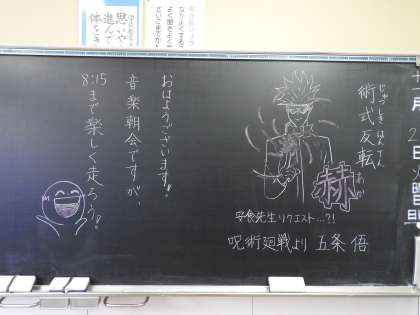 おはようございます!
音楽朝会ですが、
8:15まで楽しく走ろう!
じゅつしきはんてん
術式反転
あか
赫
安食先生リクエスト…?!
呪術廻戦より 五条 悟
思いや
進んで
体をき